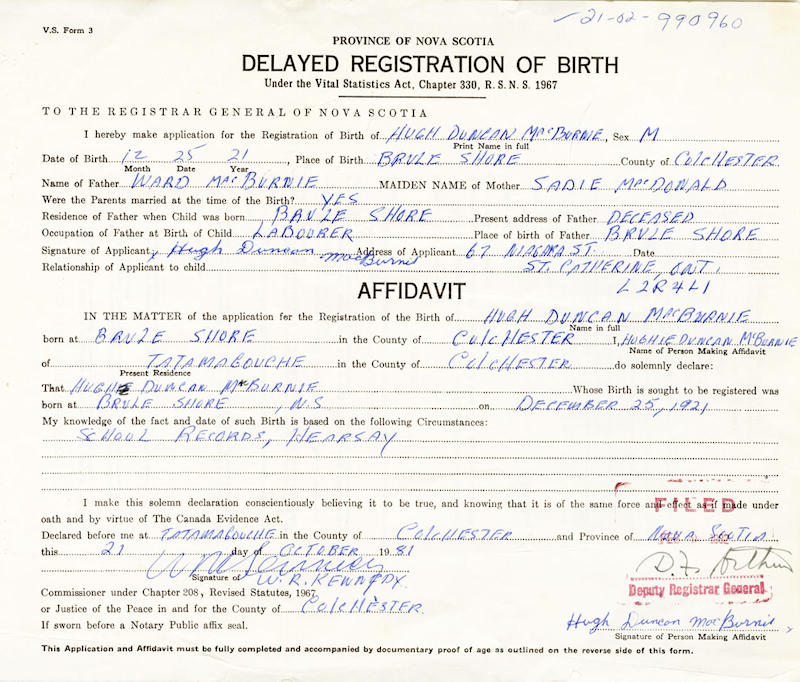 V.S. Form 3
21-02-990960
PROVINCE OF NOVA SCOTIA
DELAYED REGISTRATION OF BIRTH
Under the Vital Statistics Act, Chapter 330, R.S.N.S. 1967
TO THE REGISTRAR GENERAL OF NOVA SCOTIA
I hereby make application for the Registration of Birth of HUGH DUNCAN MACBURNIE, Sex M
Print Name in full
Date of Birth 12 25 21, Place of Birth BRULE SHORE County of COLCHESTER
Month Date Year
Name of Father WARD MACBURNIE MAIDEN NAME of Mother SADIE MACDONALD
Were the Parents married at the time of the Birth? YES
Residence of Father when Child was born, BRULE SHORE Present address of Father DECEASED
Occupation of Father at Birth of Child LABOURER Place of birth of Father BRULE SHORE
Signature of Applicant, Hugh Duncan MacBurnie Address of Applicant 67 NIAGARA ST. Date
Relationship of Applicant to child ST. CATHERINE, ONT.
L2R4L1
AFFIDAVIT
IN THE MATTER of the application for the Registration of the Birth of HUGH DUNCAN MACBURNIE
Name in full
born at BRULE SHORE in the County of COLCHESTER I, HUGHIE DUNCAN MCBURNIE
Name of Person Making Affidavit
of TATAMAGOUCHE in the County of COLCHESTER do solemnly declare:
Present Residence
That HUGHIE DUNCAN MCBURNIE Whose Birth is sought to be registered was
born at BRULE SHORE, N.S on DECEMBER 25, 1921
My knowledge of the fact and date of such Birth is based on the following Circumstances:
SCHOOL RECORDS, HEARSAY
I make this solemn declaration conscientiously believing it to be true, and knowing that it is of the same force and effect as if made under
FILED
oath and by virtue of The Canada Evidence Act.
Declared before me at TATAMAGOUCHE in the County of COLCHESTER and Province of NOVA SCOTIA
this 21 day of OCTOBER 1981
Signature of W.R. KENNEDY.
Commissioner under Chapter 208, Revised Statutes, 1967
Deputy Registrar General
or Justice of the Peace in and for the County of COLCHESTER.
If sworn before a Notary Public affix seal.
Hugh Duncan MacBurnie
Signature of Person Making Affidavit
This Application and Affidavit must be fully completed and accompanied by documentary proof of age as outlined on the reverse side of this form.